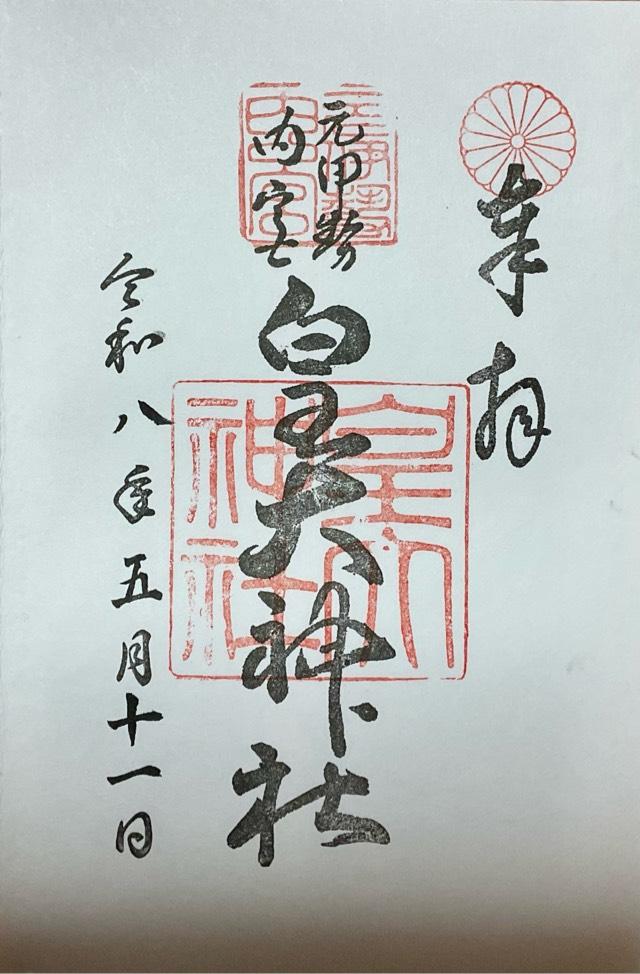 奉拝
元伊勢
内宮
皇大神社
令和八年五月十一日
元伊勢
内宮
皇大
神社